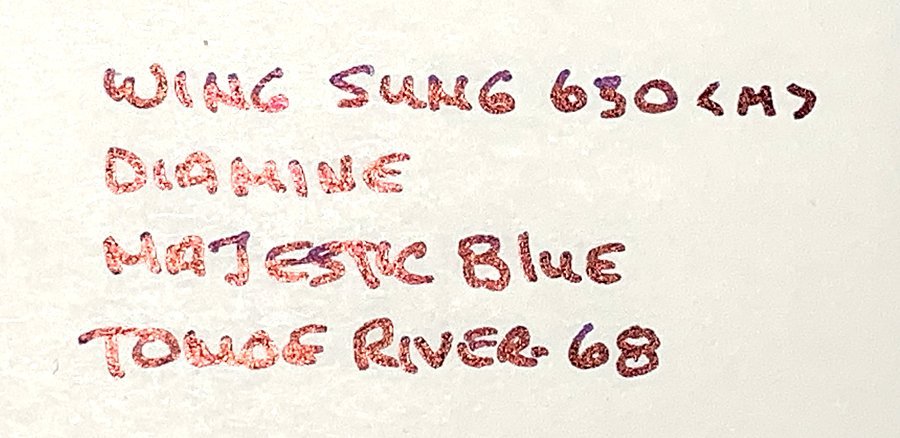 WING SUNG 630 <M>
DIAMINE
MAJESTIC BLUE
TOMOE RIVER 68